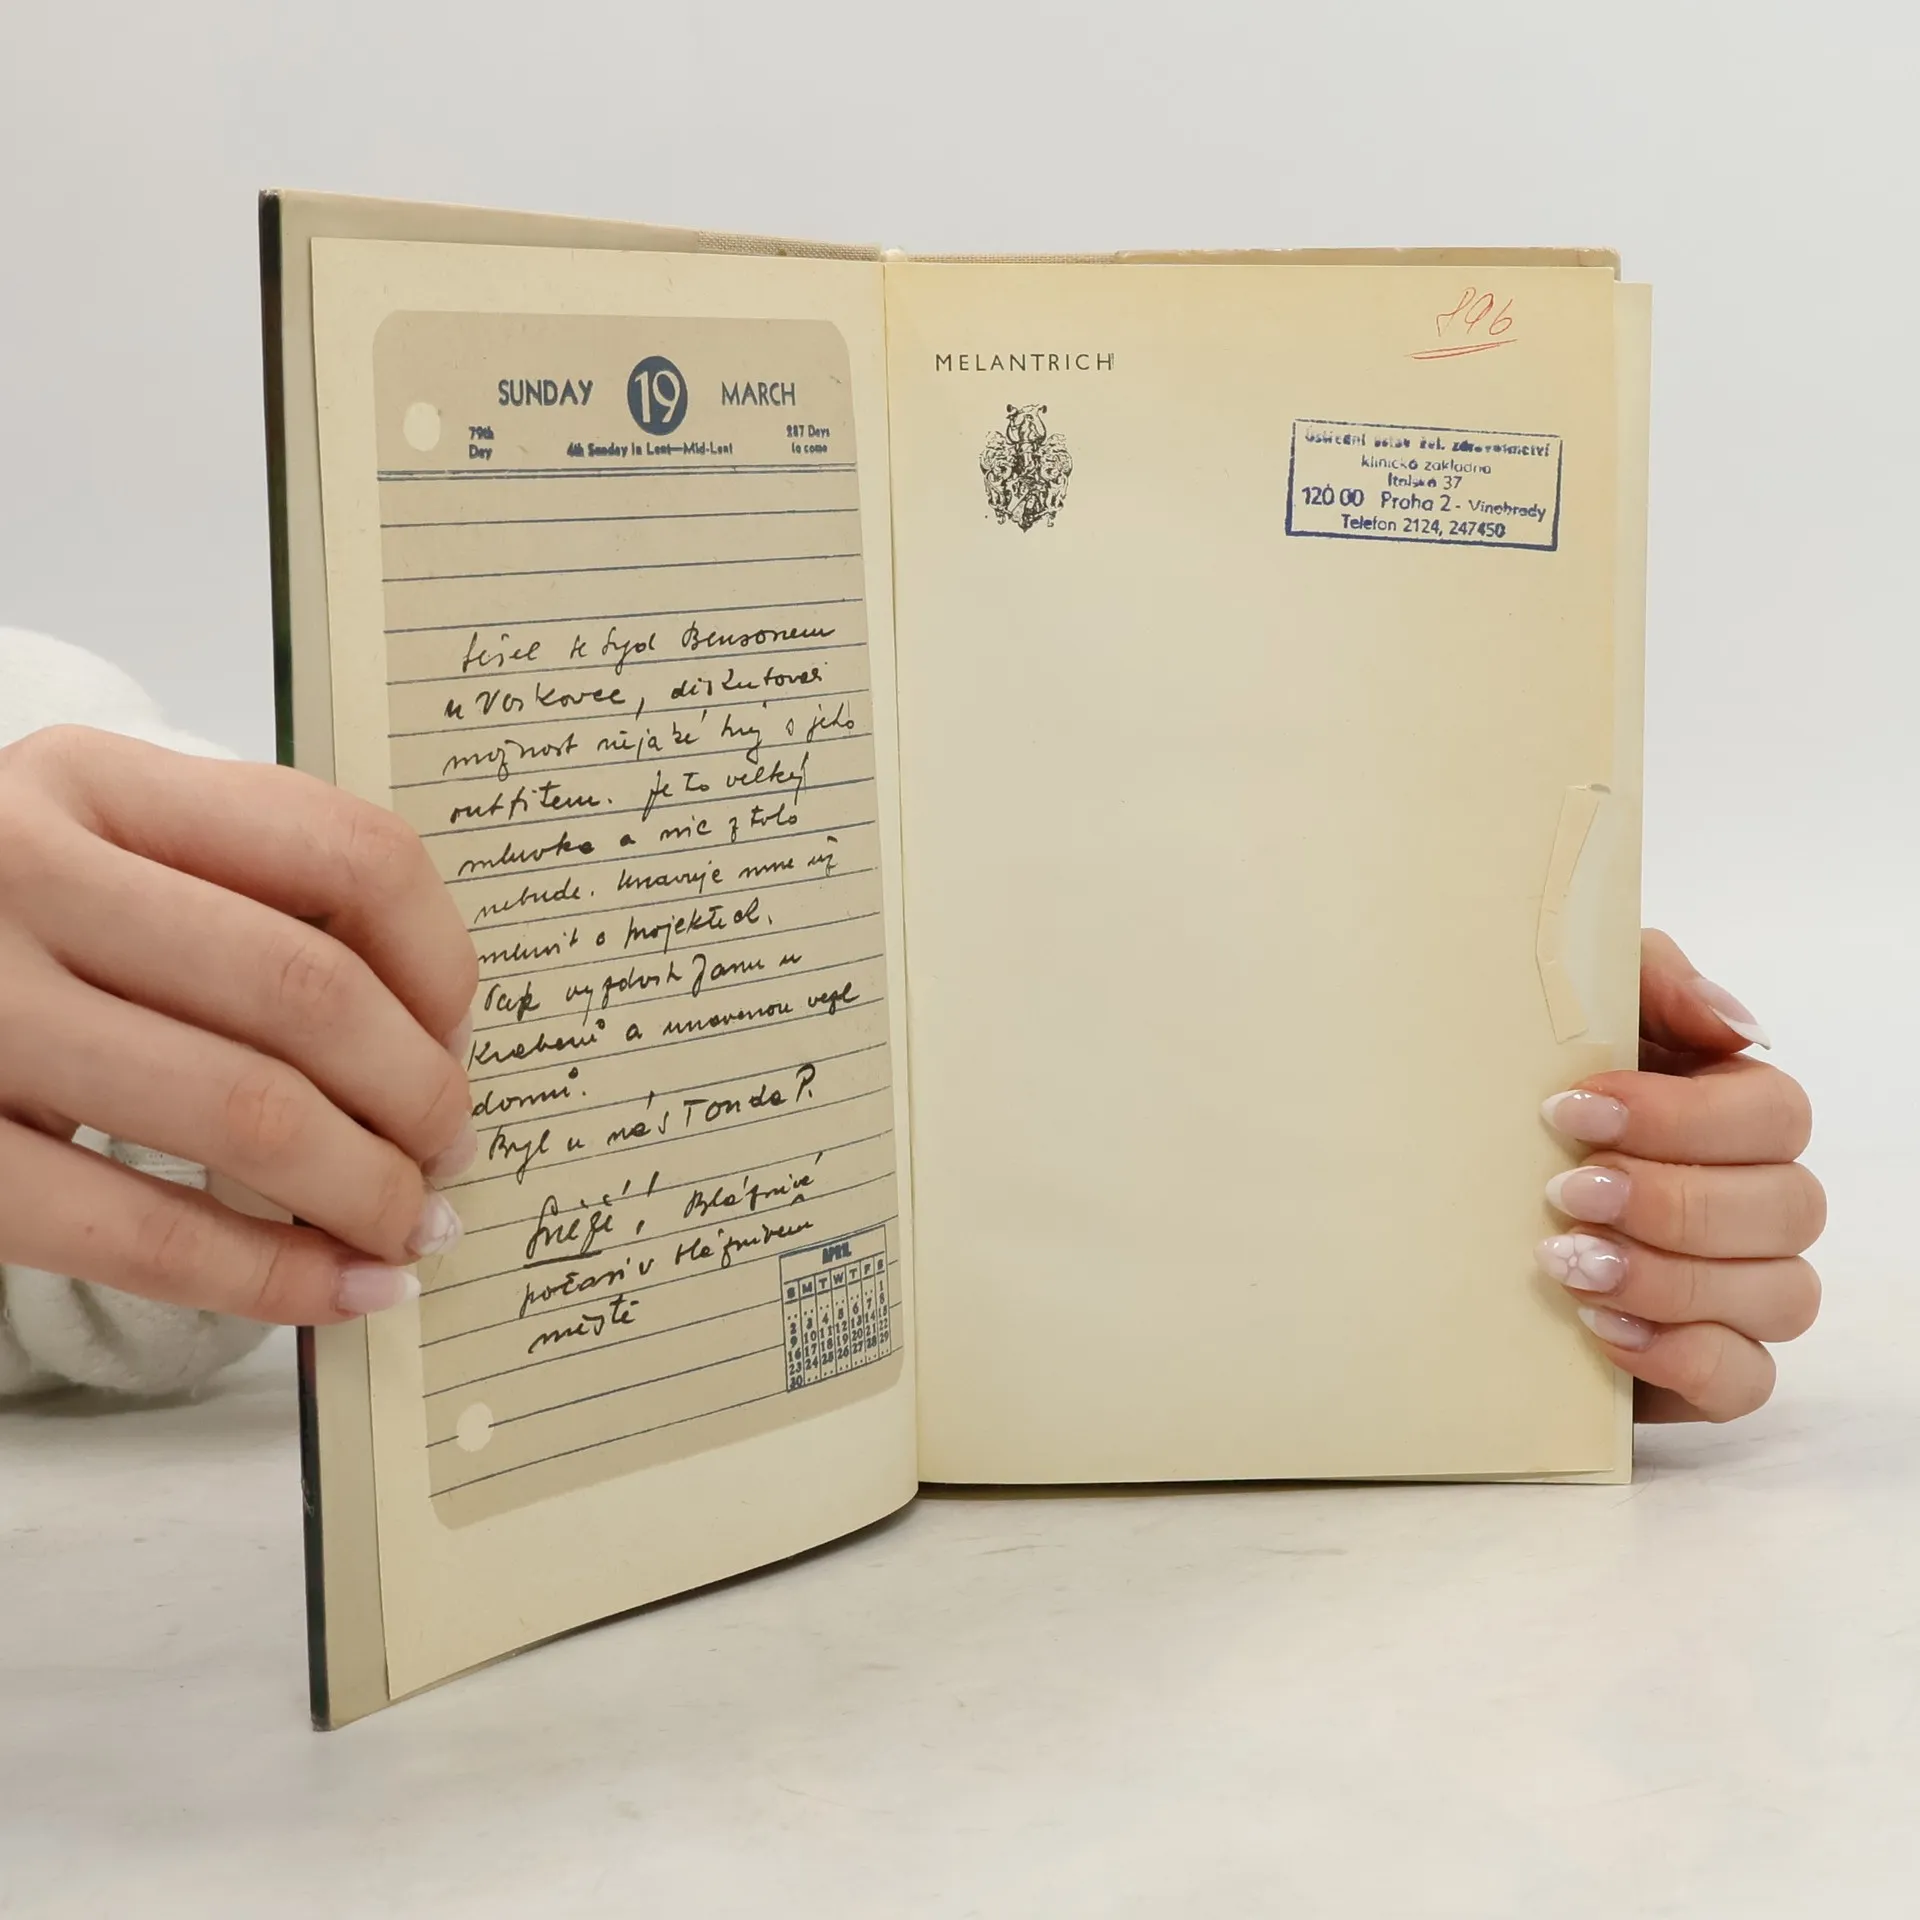 SUNDAY 19 MARCH
79th Day
4th Sunday in Lent—Mid-Lent
287 Days to come
Sešel se Syd Bensonem
u Voskovce, diskutovali
možnost nějaké hry s jeho
outfitem. Je to velký
mluvka a nic z toho
nebude. Unavuje mne už
mluvit o projektech.
Pak vyzdvih Janu u
a unavenou vezl
domů.
Byl u nás Tonda P.
Sněží! Bláznivé
počasí v bláznivém
městě
APRIL
S M T W T F S
.. .. .. .. .. .. 1
2 3 4 5 6 7 8
9 10 11 12 13 14 15
16 17 18 19 20 21 22
23 24 25 26 27 28 29
30 .. .. .. .. .. ..
MELANTRICH
896
Ústřední ústav žel. zdravotnictví
klinická základna
Italská 37
120 00 Praha 2 - Vinohrady
Telefon 2124, 247450